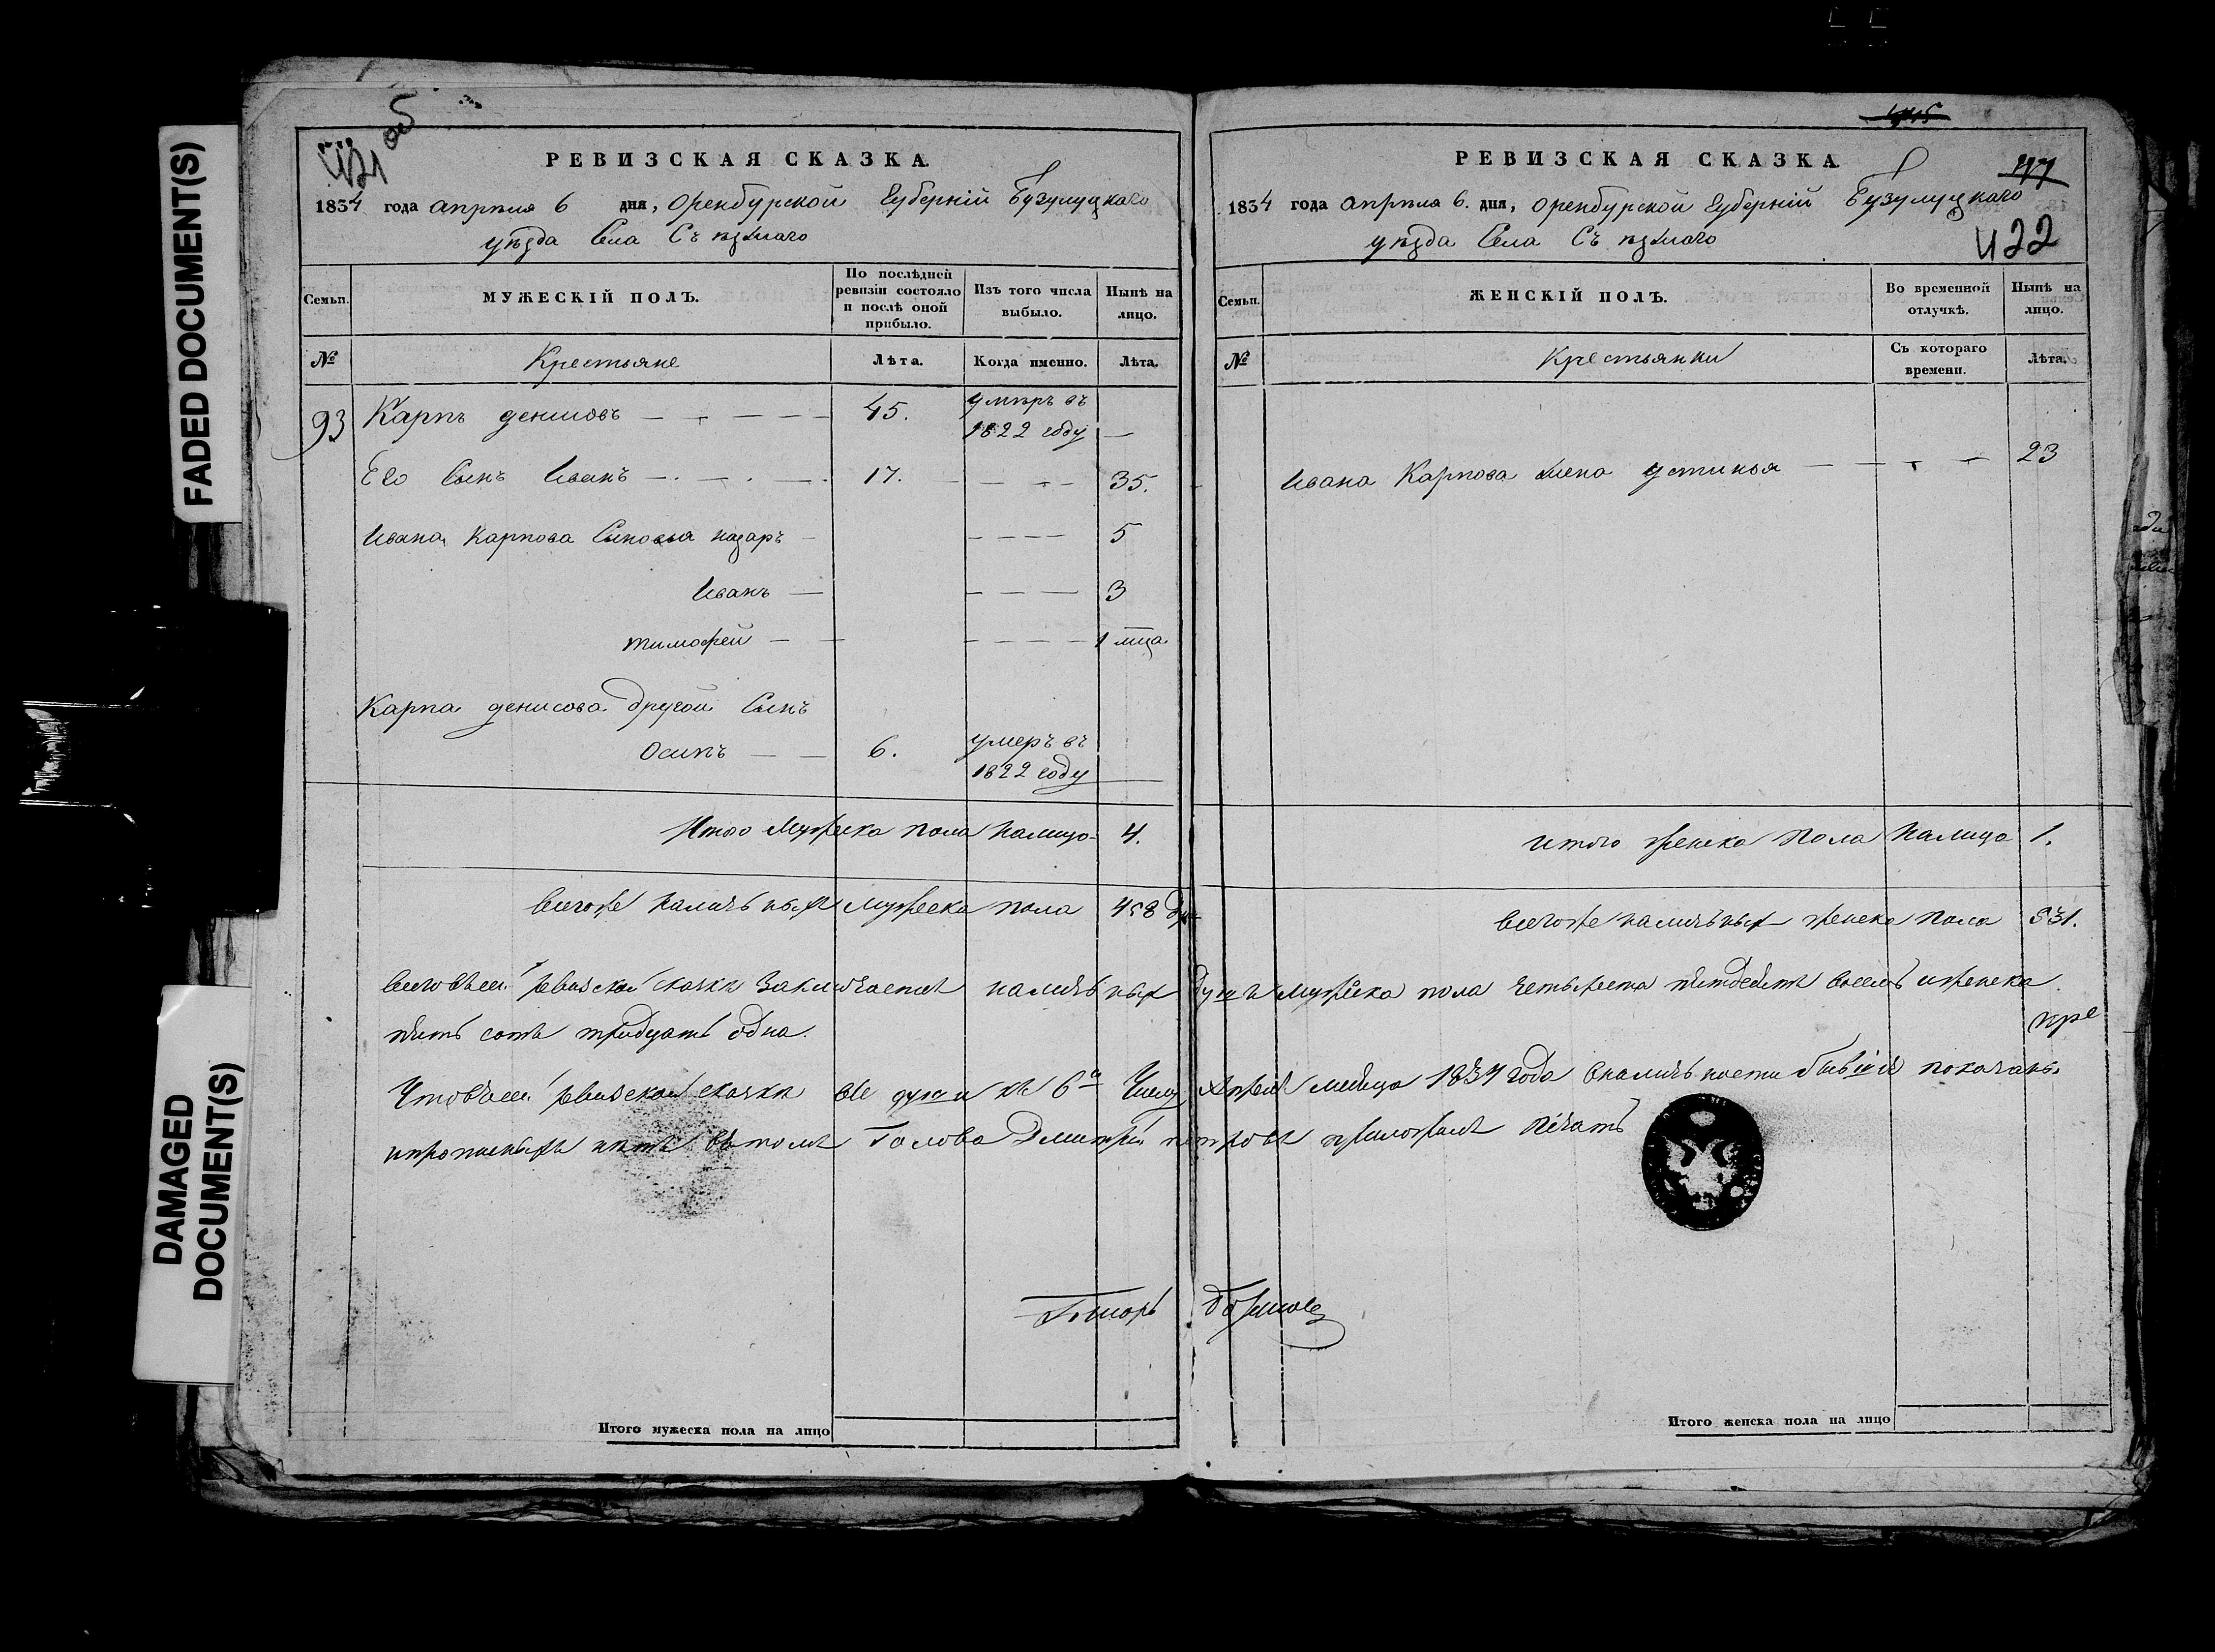 FADED DOCUMENT(S)
DAMAGED
DOCUMENT(S)
421 об
РЕВИЗСКАЯ СКАЗКА.
1834 года апрѣля 6 дня, Оренбурской Губерніи Бузулуцкаго
уѣзда Села Съѣзжаго
Семьи.
МУЖЕСКІЙ ПОЛЪ.
По послѣдней
ревизіи состояло
и послѣ оной
прибыло.
Изъ того числа
выбыло.
Нынѣ на
лицо.
№
Крестьяне
Лѣта.
Когда именно.
Лѣта.
93 Карпъ денисовъ — — — — 45. умѣръ въ
1822 году —
Его Сынъ Иванъ — — — 17. — — — 35.
Ивана Карпова Сыновья назаръ — — — — 5
Иванъ — — — — 3
тимофей — — — — — 1 мца
Карпа денисова другой Сынъ
Осипъ — — 6. умеръ въ
1822 году —
Итого Мужеска пола налицо 4.
всегоже наличныхъ мужеска пола 458
РЕВИЗСКАЯ СКАЗКА.
417
1834 года апрѣля 6. дня, Оренбурской Губерніи Бузулуцкаго
уѣзда Села Съѣзжаго
422
Семьи.
ЖЕНСКІЙ ПОЛЪ.
Во временной
отлучкѣ.
Нынѣ на
лицо.
№
Крестьянки
Съ котораго
времени.
Лѣта.
Ивана Карпова жена устинья — — — — 23
итого женска пола налицо 1.
всегоже наличныхъ женска пола 531.
всего въ сей ревиской скаски заключается наличьныхъ душъ мужеска пола четыреста пятдесятъ восемь иженска
пять сотъ тридцать одна.
Что въ сей ревиской скаски все души къ 6му Числу Апреля месеца 1834 года вналичьности бывшие показаны
ипрописныхъ нѣтъ въ томъ Голова Дмитрей петровъ приложилъ печать
Итого мужеска пола на лицо
Итого женска пола на лицо